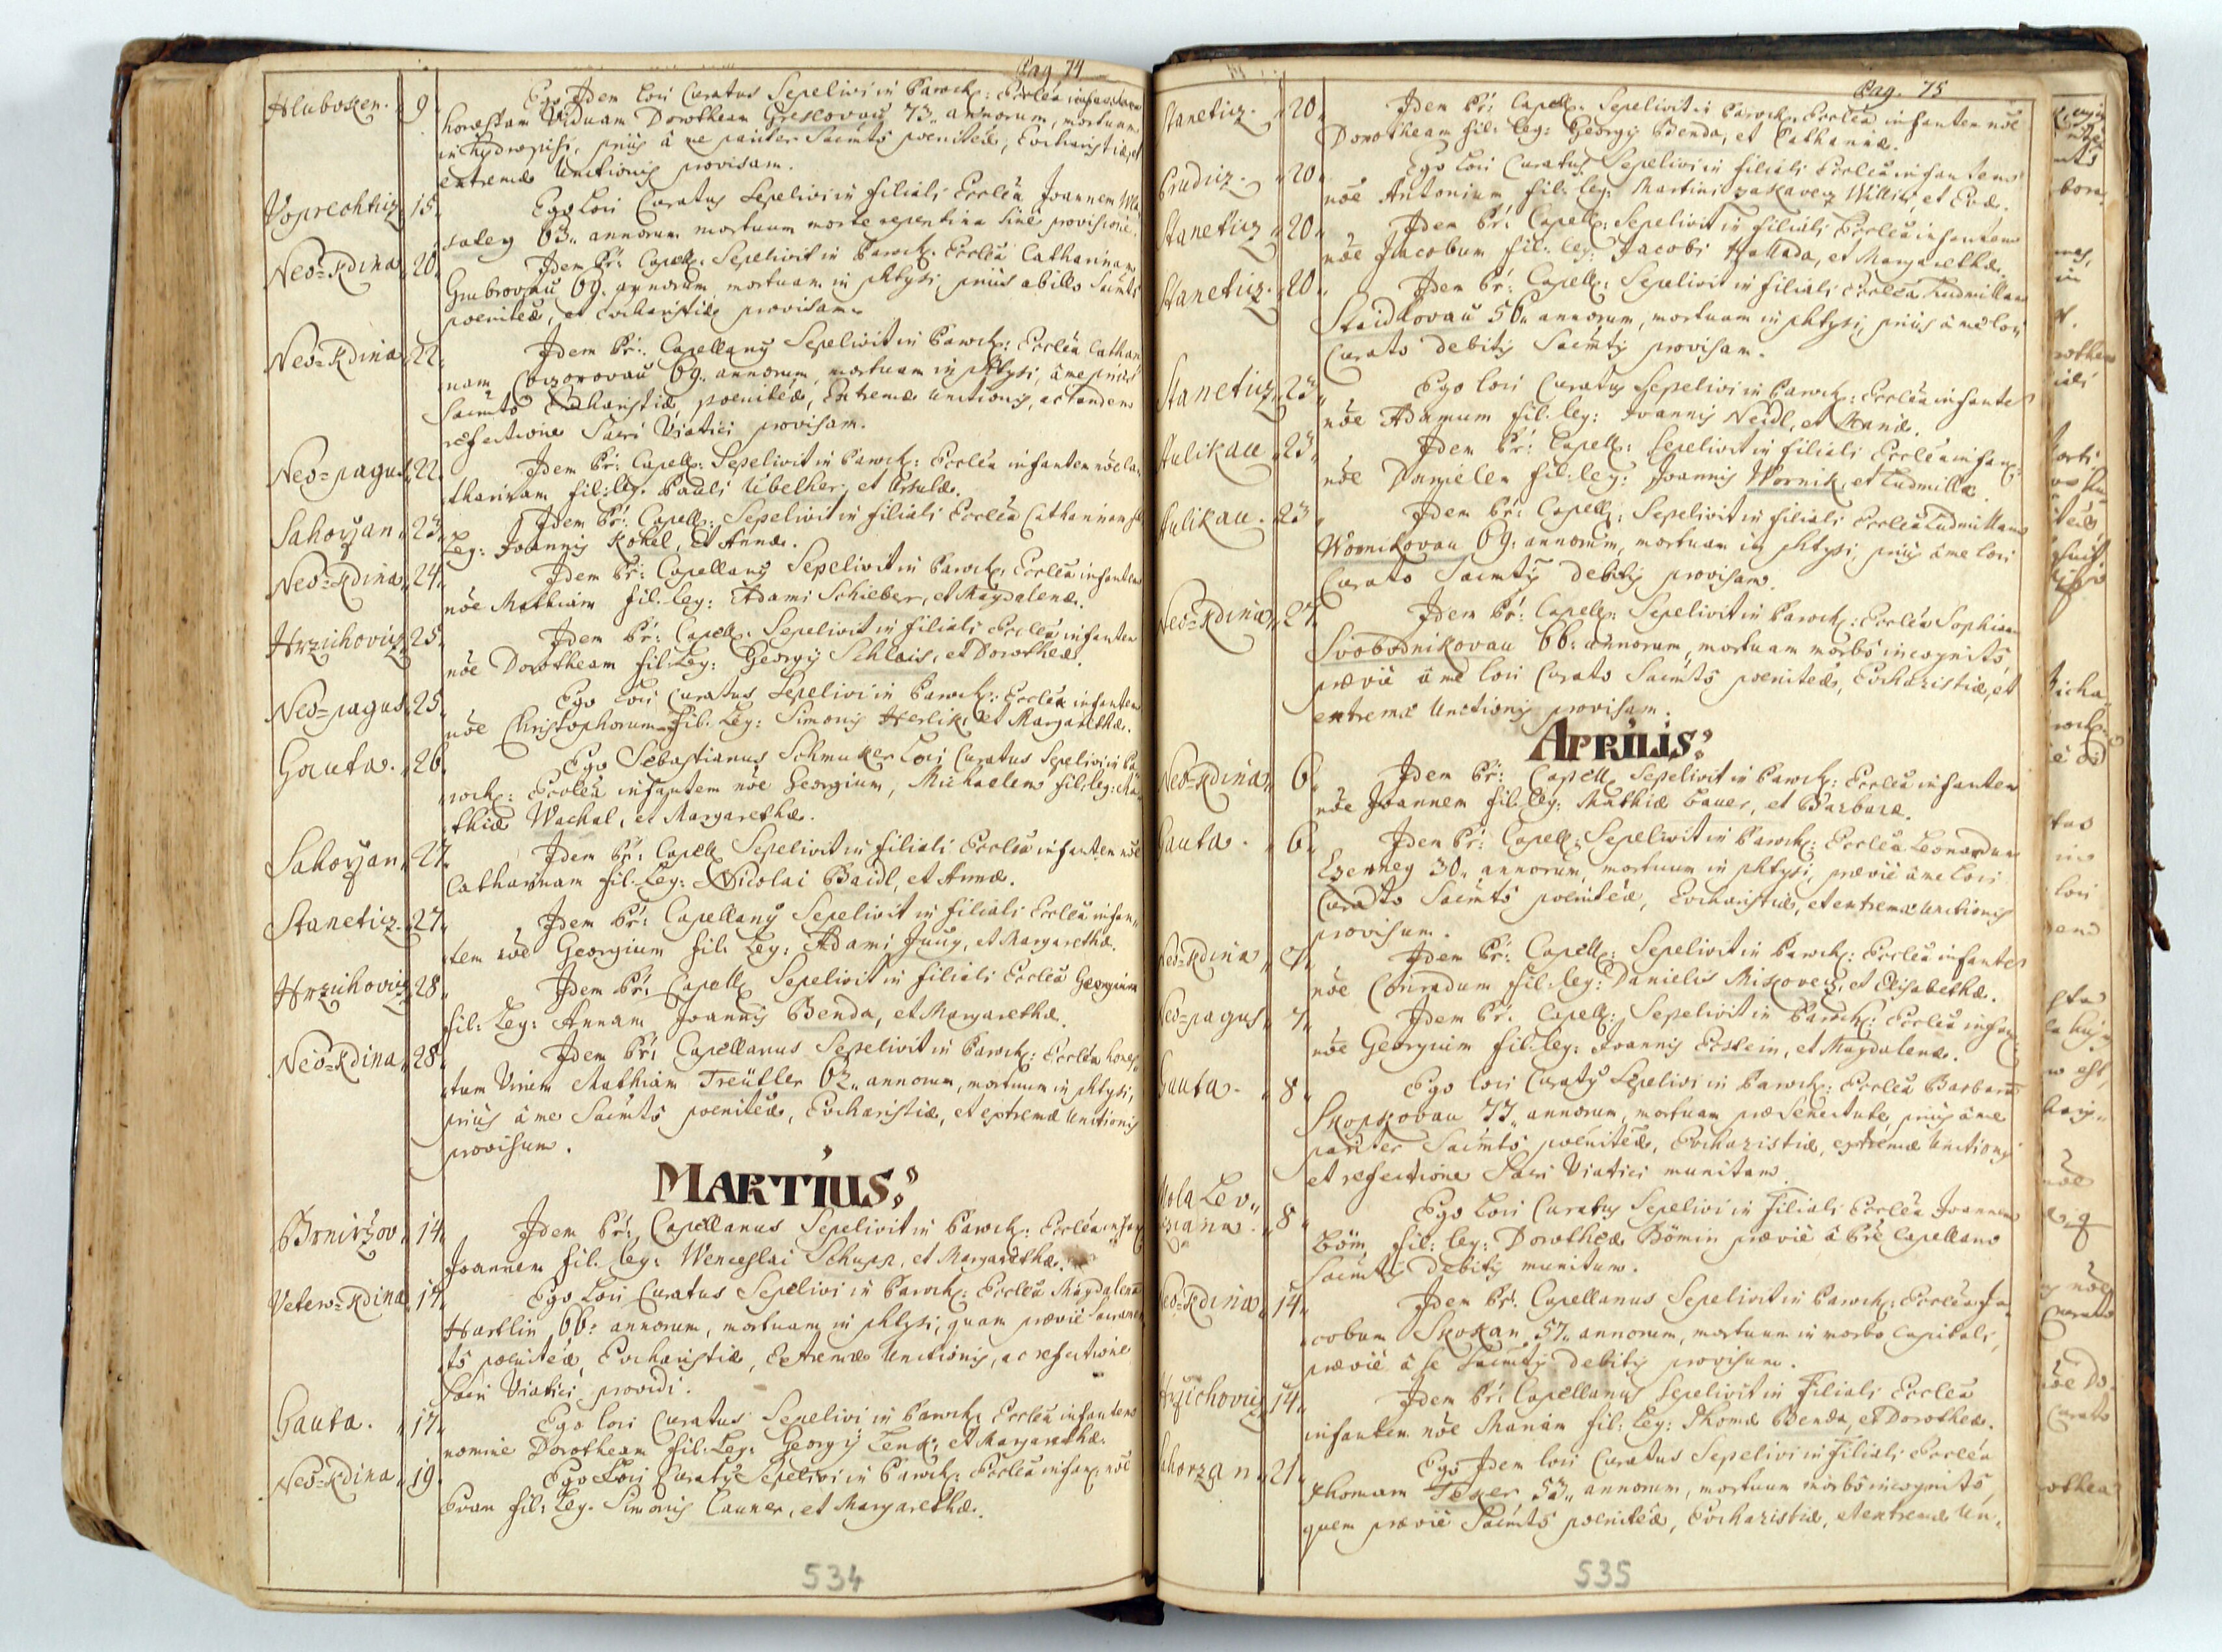 Pag 74
Hluboken. 9 Ego Idem Loci Curatus Sepelivi in Paroch: Ecclea
honestam Viduam Dorotheam Greslovau 73. annorum, mortuam
in hydropisi, prius à me pariter Sacmto poeniteae, Eucharistiae, et
extremae Unctionis provisam.
Voprechticz 15. Ego Loci Curatus Sepelivi in filiali Ecclea Joannem
saleg 63. annorum mortuum morte repentina sine provisione.
Neo-Kdina 20. Idem Pr: Capell: Sepelivit in Paroch: Ecclea Catharinam
Grubrovau 69. annorum mortuam in phtysi, prius ab illo Sacmto
poeniteae, et Eucharistiae provisam.
Neo-Kdina 22. Idem Pr: Capellanus Sepelivit in Paroch: Ecclea Cathari
nam 69. annorum, mortuam in phtysi, à me prius
Sacmto Eucharistiae, poeniteae, Extremae Unctionis, ac tandem
refectione Sacri Viatici provisam.
Neo-pagus 22. Idem Pr: Capell: Sepelivit in Paroch: Ecclea infantem nõe Ca
tharinam fil: leg: Pauli Übelher, et Ursulae.
Sahorzan 23. Idem Pr: Capell: Sepelivit in filiali Ecclea Catharinam fil
Leg: Joannis Kokel, et Annae.
Neo-Kdina 24. Idem Pr: Capellanus Sepelivit in Paroch: Ecclea infantem
nõe Mathiam fil: Leg: Adami Schieber, et Magdalenae.
Hrzichovicz 25. Idem Pr: Capell: Sepelivit in filiali Ecclea infantem
nõe Dorotheam fil: Leg: Georgij Schlais, et Dorotheae.
Neo-pagus 25. Ego Loci Curatus Sepelivi in Paroch: Ecclea infantem
nõe Christophorum fil: Leg: Simonis Herlik, et Margarethae.
Gauta. 26. Ego Sebastianus Schmuker Loci Curatus Sepelivi in Pa
roch: Ecclea infantem nõe Georgium, Michaelem fil: leg: Ma
thiae Wachal, et Margarethae.
Sahorzan 27. Idem Pr: Capell Sepelivit in filiali Ecclea infantem nõe
Catharinam fil: Leg: Nicolai Baidl, et Annae.
Staneticz 27. Idem Pr: Capellanus Sepelivit in filiali Ecclea infan
tem nõe Georgium fil: Leg: Adami Jung, et Margarethae.
Hrzichovicz 28. Idem Pr: Capell Sepelivit in filiali Ecclea Georgium
fil: Leg: Annam Joannis Benda, et Margarethae.
Neo-Kdina 28. Idem Pr: Capellanus Sepelivit in Paroch: Ecclea hones
tum Virum Mathiam Treütler 62. annorum, mortuum in phtysi,
prius à me Sacmto poeniteae, Eucharistiae, et extremae Unctionis
provisum.
MARTIUS:
Brnirzov 14. Idem Pr: Capellanus Sepelivit in Paroch: Ecclea infan
Joannem fil: leg: Wenceslai Schupp, et Margarethae.
Veter-Kdina 17. Ego Loci Curatus Sepelivi in Paroch: Ecclea Magdalena
Hartlin 66: annorum, mortuam in phtysi, quam praevie Sacramen
to poeniteae, Eucharistiae, Extremae Unctionis, ac refectione
Sacri Viatici providi.
Gauta. 17. Ego Loci Curatus Sepelivi in Paroch: Ecclea infantem
nomine Dorotheam fil: Leg: Georgij Zenk, et Margarethae.
Neo-Kdina 19. Ego Loci Curatus Sepelivi in Paroch: Ecclea infan: nõe
Evam fil: Leg: Simonis Tauner, et Margarethae.
534
Pag. 75
Staneticz. 20 Idem Pr: Capell: Sepelivit in Paroch: Ecclea infantem nõe
Dorotheam fil: leg: Georgij Benda, et Catharinae.
Prudicz. 20 Ego Loci Curatus Sepelivi in filiali Ecclea infantem
nõe Antonium fil: leg: Martini et Evae.
Staneticz 20 Idem Pr: Capell: Sepelivit in filiali Ecclea infantem
nõe Jacobum fil: leg: Jacobi Hallada, et Margarethae.
Staneticz 20 Idem Pr: Capell: Sepelivit in filiali Ecclea Ludmillam
56. annorum, mortuam in phtysi, prius à me Loci
Curato debitis Sacmtis provisam.
Staneticz 23 Ego Loci Curatus Sepelivi in Paroch: Ecclea infante
nõe Adamum fil: leg: Joannis Neidl, et Annae.
Hulikau 23 Idem Pr: Capell: Sepelivit in filiali Ecclea infan:
nõe Danielem fil: leg: Joannis Wornik, et Ludmillae.
Hulikau. 23 Idem Pr: Capell: Sepelivit in filiali Ecclea Ludmillam
Wornikovau 69: annorum, mortuam in phtysi, prius à me Loci
Curato Sacmtis debitis provisam.
Neo-Kdina 27. Idem Pr: Capell: Sepelivit in Paroch: Ecclea Sophiam
Svobodnikovau 66: annorum, mortuam morbo incognito,
praevie à me Loci Curato Sacmto poeniteae, Eucharistiae, et
extremae Unctionis provisam.
APRILIS:
Neo-Kdina 6. Idem Pr: Capell Sepelivit in Paroch: Ecclea infantem
nõe Joannem fil: leg: Mathiae Bauer, et Barbarae.
Gauta. 6. Idem Pr: Capell: Sepelivit in Paroch: Ecclea Leonardum
Czerneg 30. annorum, mortuum in phtysi, praevie à me Loci
Curato Sacmto poeniteae, Eucharistiae, et extremae Unctionis
provisum.
Neo-Kdina 7. Idem Pr: Capell: Sepelivit in Paroch: Ecclea infante
nõe Conradum fil: leg: Danielis Miskovecz, et Elisabethae.
Neo-pagus 7. Idem Pr: Capell: Sepelivit in Paroch: Ecclea infan:
nõe Georgium fil: leg: Joannis Ecstein, et Magdalenae.
Gauta. 8 Ego Loci Curatus Sepelivi in Paroch: Ecclea Barbara
Skopkovau 77. annorum, mortuam prae Senectute, prius à me
pariter Sacmto poeniteae, Eucharistiae, extremae Unctionis
et refectione Sacri Viatici munitam.
Mola Lev
8 Ego Loci Curatus Sepelivi in Filiali Ecclea Joannem
Böm, fil: leg: Dorotheae Bömin praevie à Pre Capellano
Sacmtis debitis munitum.
Neo-Kdina 14. Idem Pr: Capellanus Sepelivit in Paroch: Ecclea Ja
cobum Skokan 57. annorum, mortuum in morbo capitali,
praevie à se Sacmtis debitis provisum.
Hrzichovicz 14. Idem Pr: Capellanus Sepelivit in Filiali Ecclea
infantem nõe Mariam fil: Leg: Thomae Benda, et Dorotheae.
Sahorzan 21. Ego Idem Loci Curatus Sepelivi in Filiali Ecclea
Thomam Texer 53. annorum, mortuum morbo incognito,
quem praevie Sacmto poeniteae, Eucharistiae, et extremae Un.
535